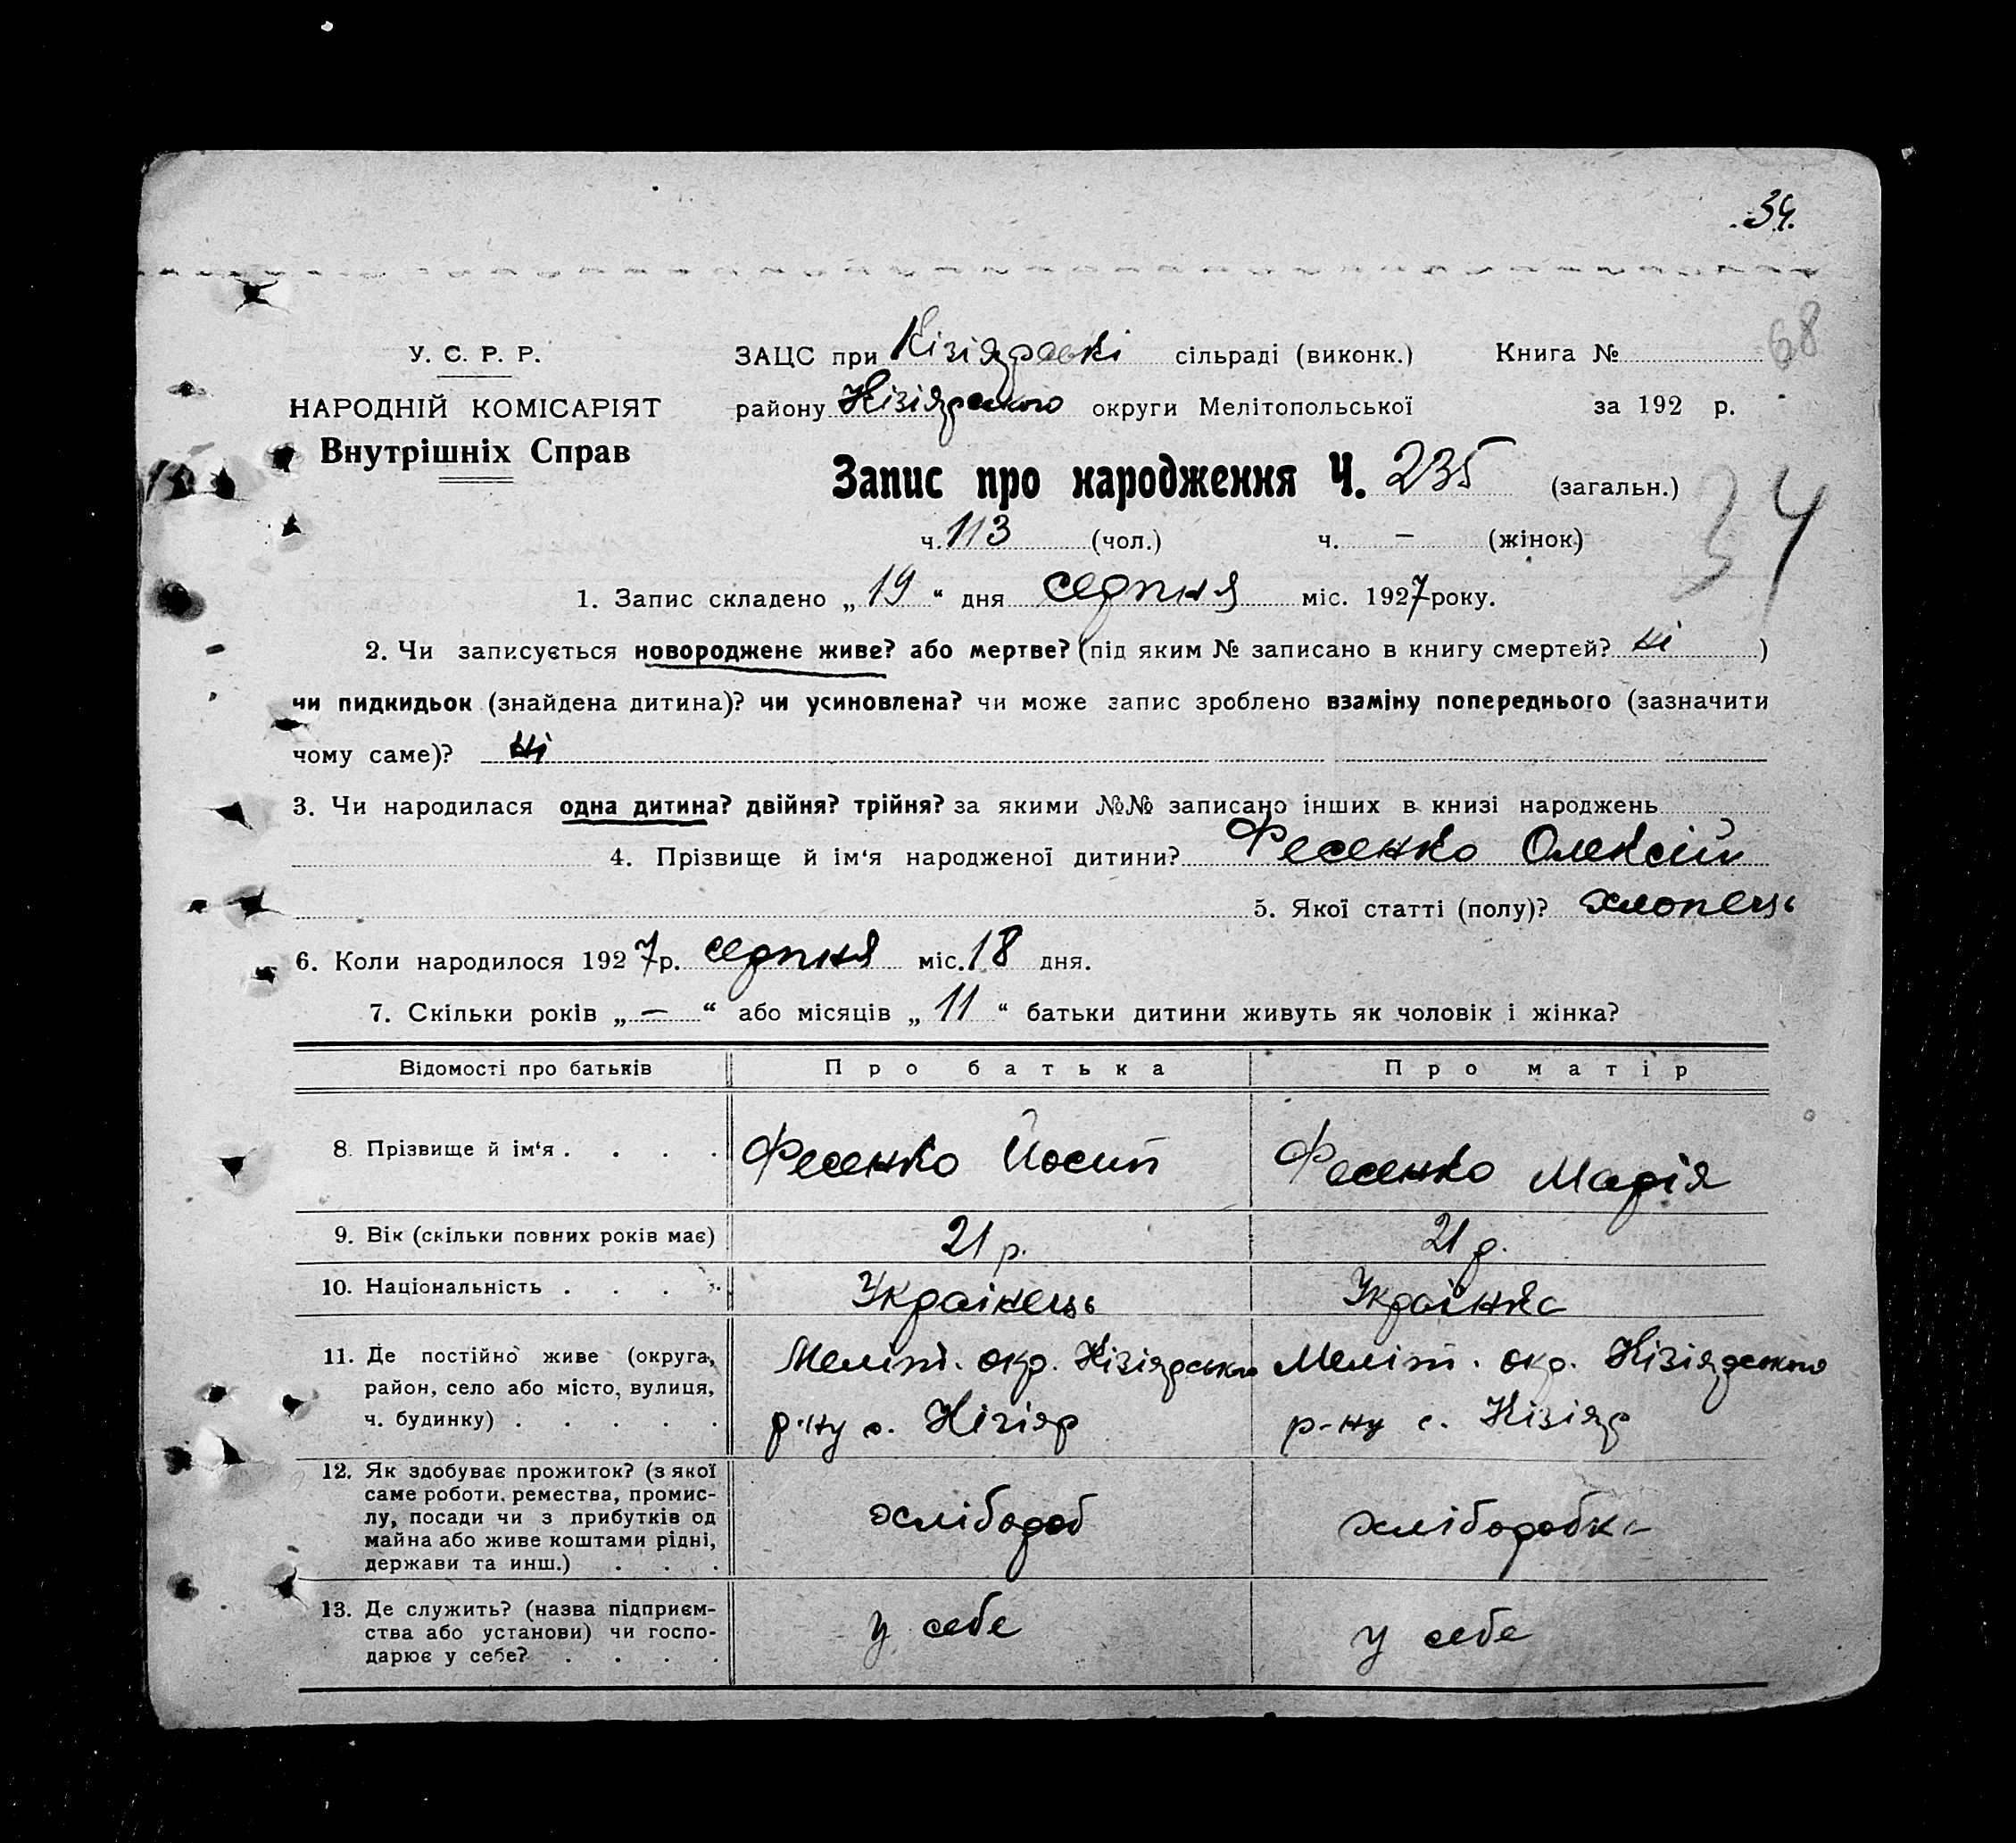 34.
68
У. С. Р. Р.
НАРОДНІЙ КОМІСАРІЯТ
Внутрішніх Справ
ЗАЦС при Кізіярські сільраді (виконк.) Книга №
району Кізіярського округи Мелітопольської за 192 р.
Запис про народження Ч. 235 (загальн.)
34
ч. 113 (чол.) ч. — (жінок)
1. Запис складено „ 19 “ дня серпня міс. 1927 року.
2. Чи записується новороджене живе? або мертве? (під яким № записано в книгу смертей? ні )
чи пидкидьок (знайдена дитина)? чи усиновлена? чи може запис зроблено взаміну попереднього (зазначити
чому саме)? ні
3. Чи народилася одна дитина? двійня? трійня? за якими №№ записано інших в книзі народжень
4. Прізвище й ім‘я народженої дитини? Фесенко Олексій
5. Якої статті (полу)? хлопець
6. Коли народилося 1927 р. серпня міс. 18 дня.
7. Скільки років „ — “ або місяців „ 11 “ батьки дитини живуть як чоловік і жінка?
Відомості про батьків Про батька Про матір
8. Прізвище й ім‘я . . . . Фесенко Йосип Фесенко Марія
9. Вік (скільки повних років має) 21 р. 21 р.
10. Національність . . . . Украінець Украінка
11. Де постійно живе (округа,
район, село або місто, вулиця,
ч. будинку) . . . . .
Меліт. окр. Кізіярського
р-ну с. Кізіяр
Меліт. окр. Кізіярського
р-ну с. Кізіяр
12. Як здобуває прожиток? (з якої
саме роботи, ремества, промис-
лу, посади чи з прибутків од
майна або живе коштами рідні,
держави та инш.) . . .
хлібороб
хліборобка
13. Де служить? (назва підприєм-
ства або установи) чи госпо-
дарює у себе? . . . .
у себе
у себе